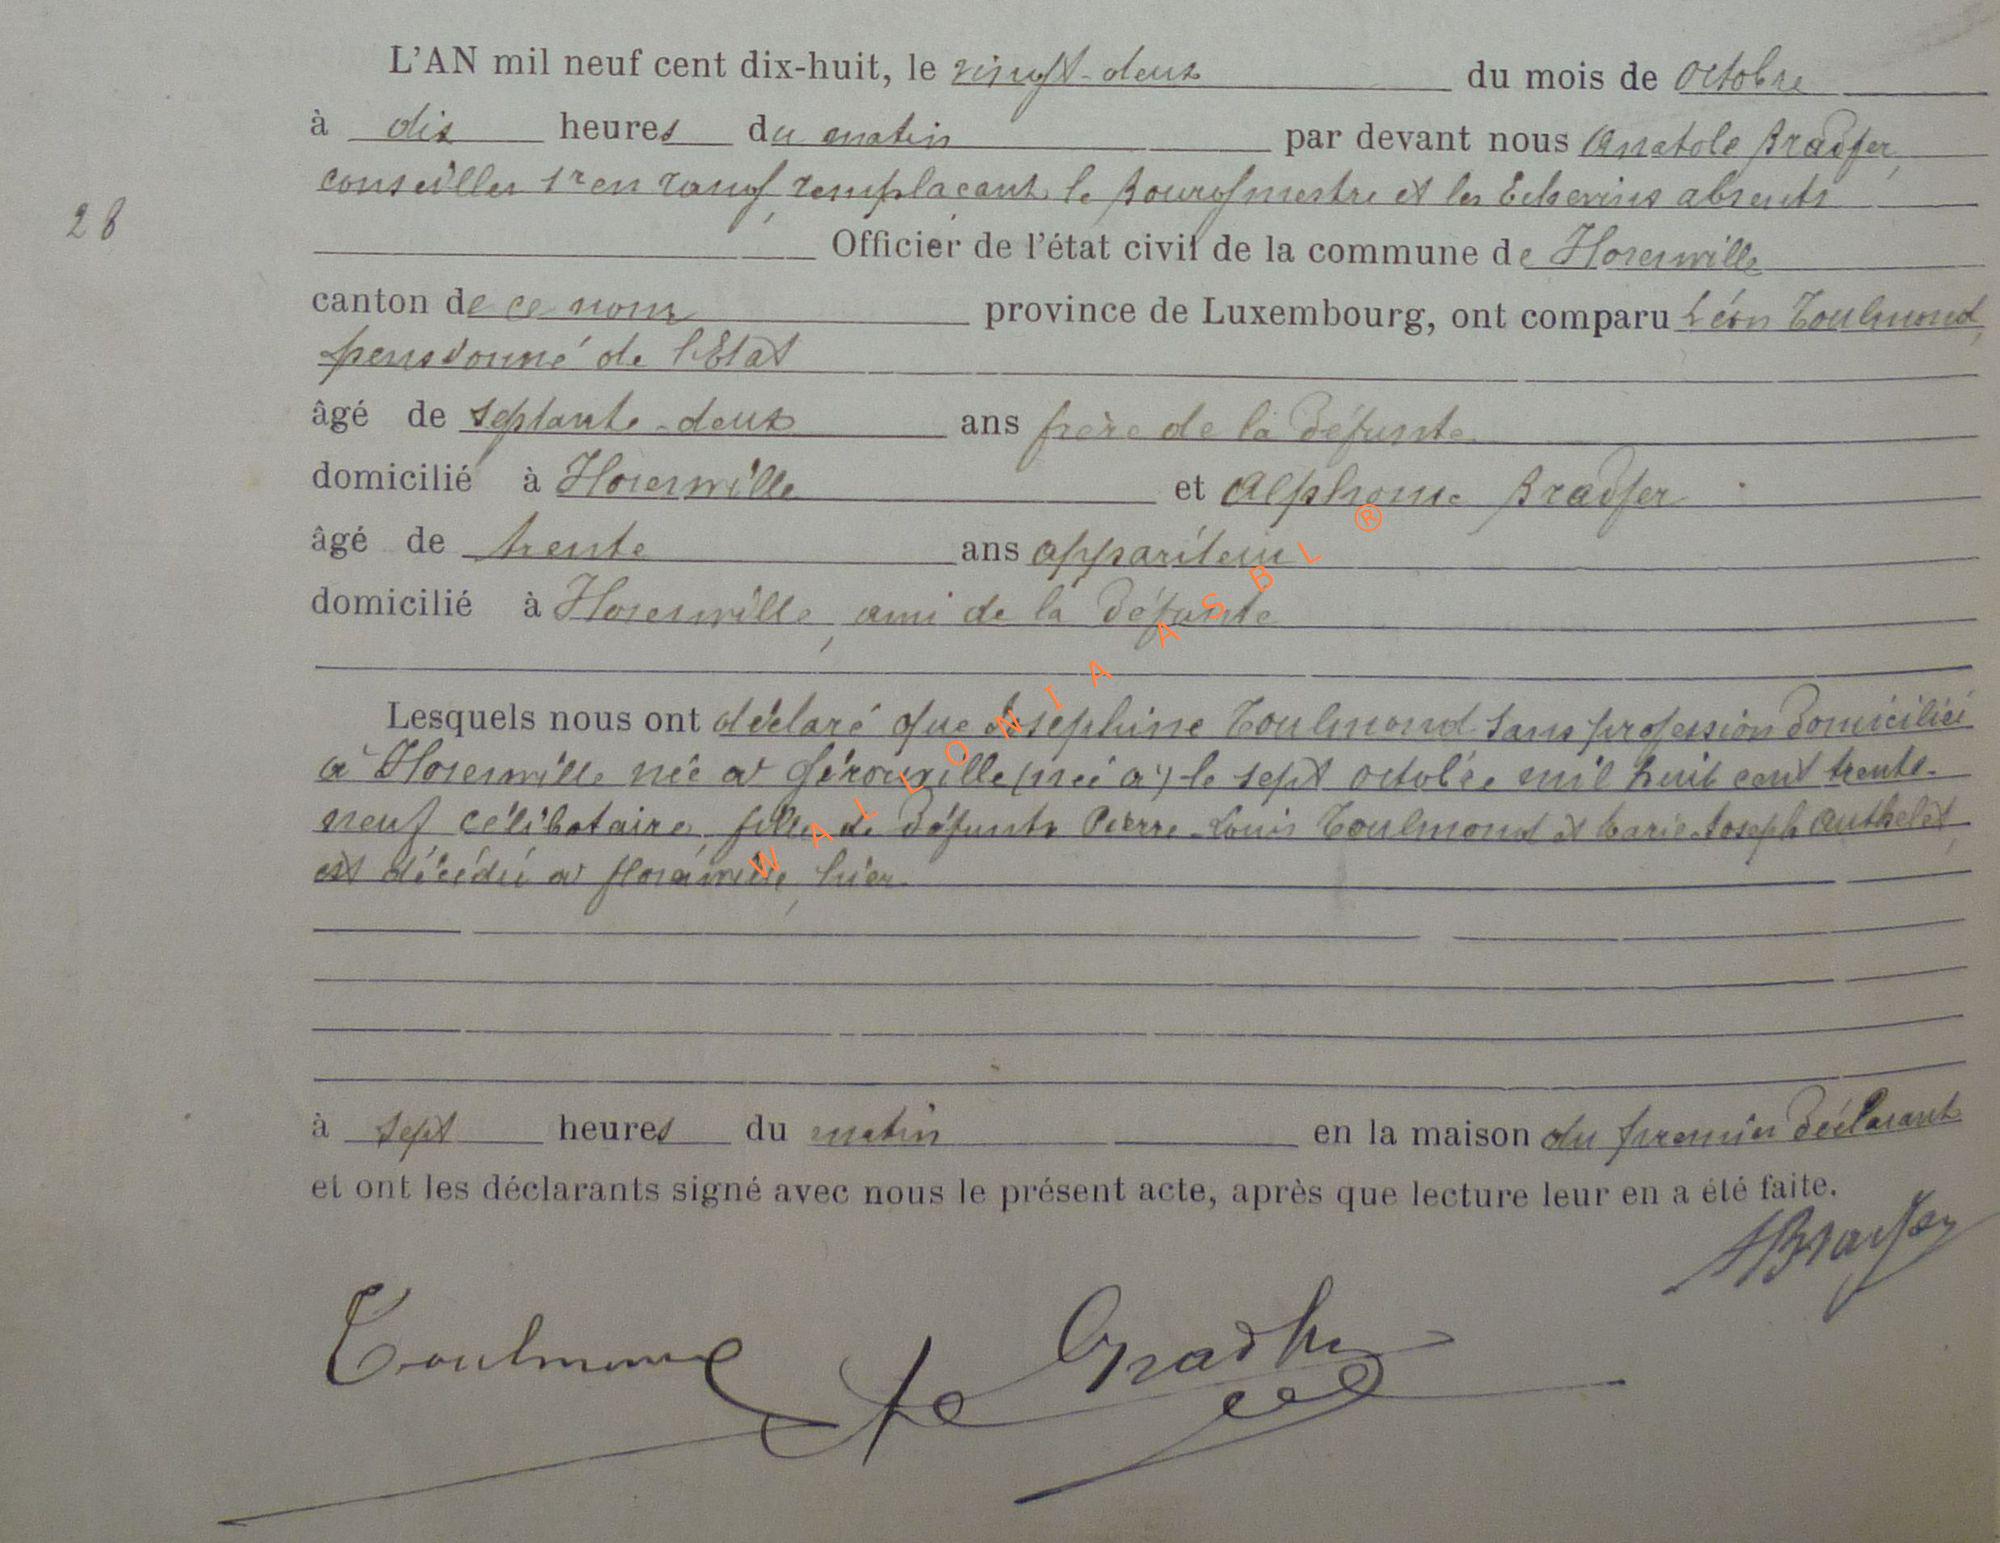 L'AN mil neuf cent dix-huit, le vingt-deux du mois de Octobre
à dix heures du matin par devant nous Anatole Bradfer,
conseiller 1r en rang, remplaçant le Bourgmestre et les Echevins absents
28
Officier de l'état civil de la commune de Florenville
canton de ce nom province de Luxembourg, ont comparu Léon Toulmond,
pensionné de l'Etat
âgé de septante-deux ans frère de la défunte
domicilié à Florenville et Alphonse Bradfer
âgé de trente ans appariteur
domicilié à Florenville, ami de la défunte
Lesquels nous ont déclaré que Josephine Toulmond sans profession domiciliée
à Florenville née à Gérouville (née à) le sept octobre mil huit cent trente-
neuf célibataire, fille de défunts Pierre-Louis Toulmond et Marie-Joseph Authelet,
est décédée à Florenville, hier
à sept heures du matin en la maison du premier déclarant
et ont les déclarants signé avec nous le présent acte, après que lecture leur en a été faite.
ABradfer
Toulmond
Bradfer
WALLONIA ASBL ®